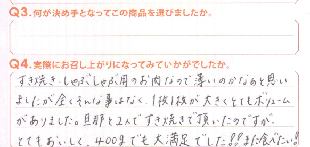 Q3.何が決め手となってこの商品を選びましたか。
Q4.実際にお召し上がりになってみていかがでしたか。
すき焼き・しゃぶしゃぶ用のお肉なので薄いのかなあと思い
ましたが全くそんな事はなく、1枚1枚が大きくとてもボリューム
がありました。旦那と2人ですき焼きで頂いたのですが、
とてもおいしく、400gでも大満足でした!!また食べたい!!